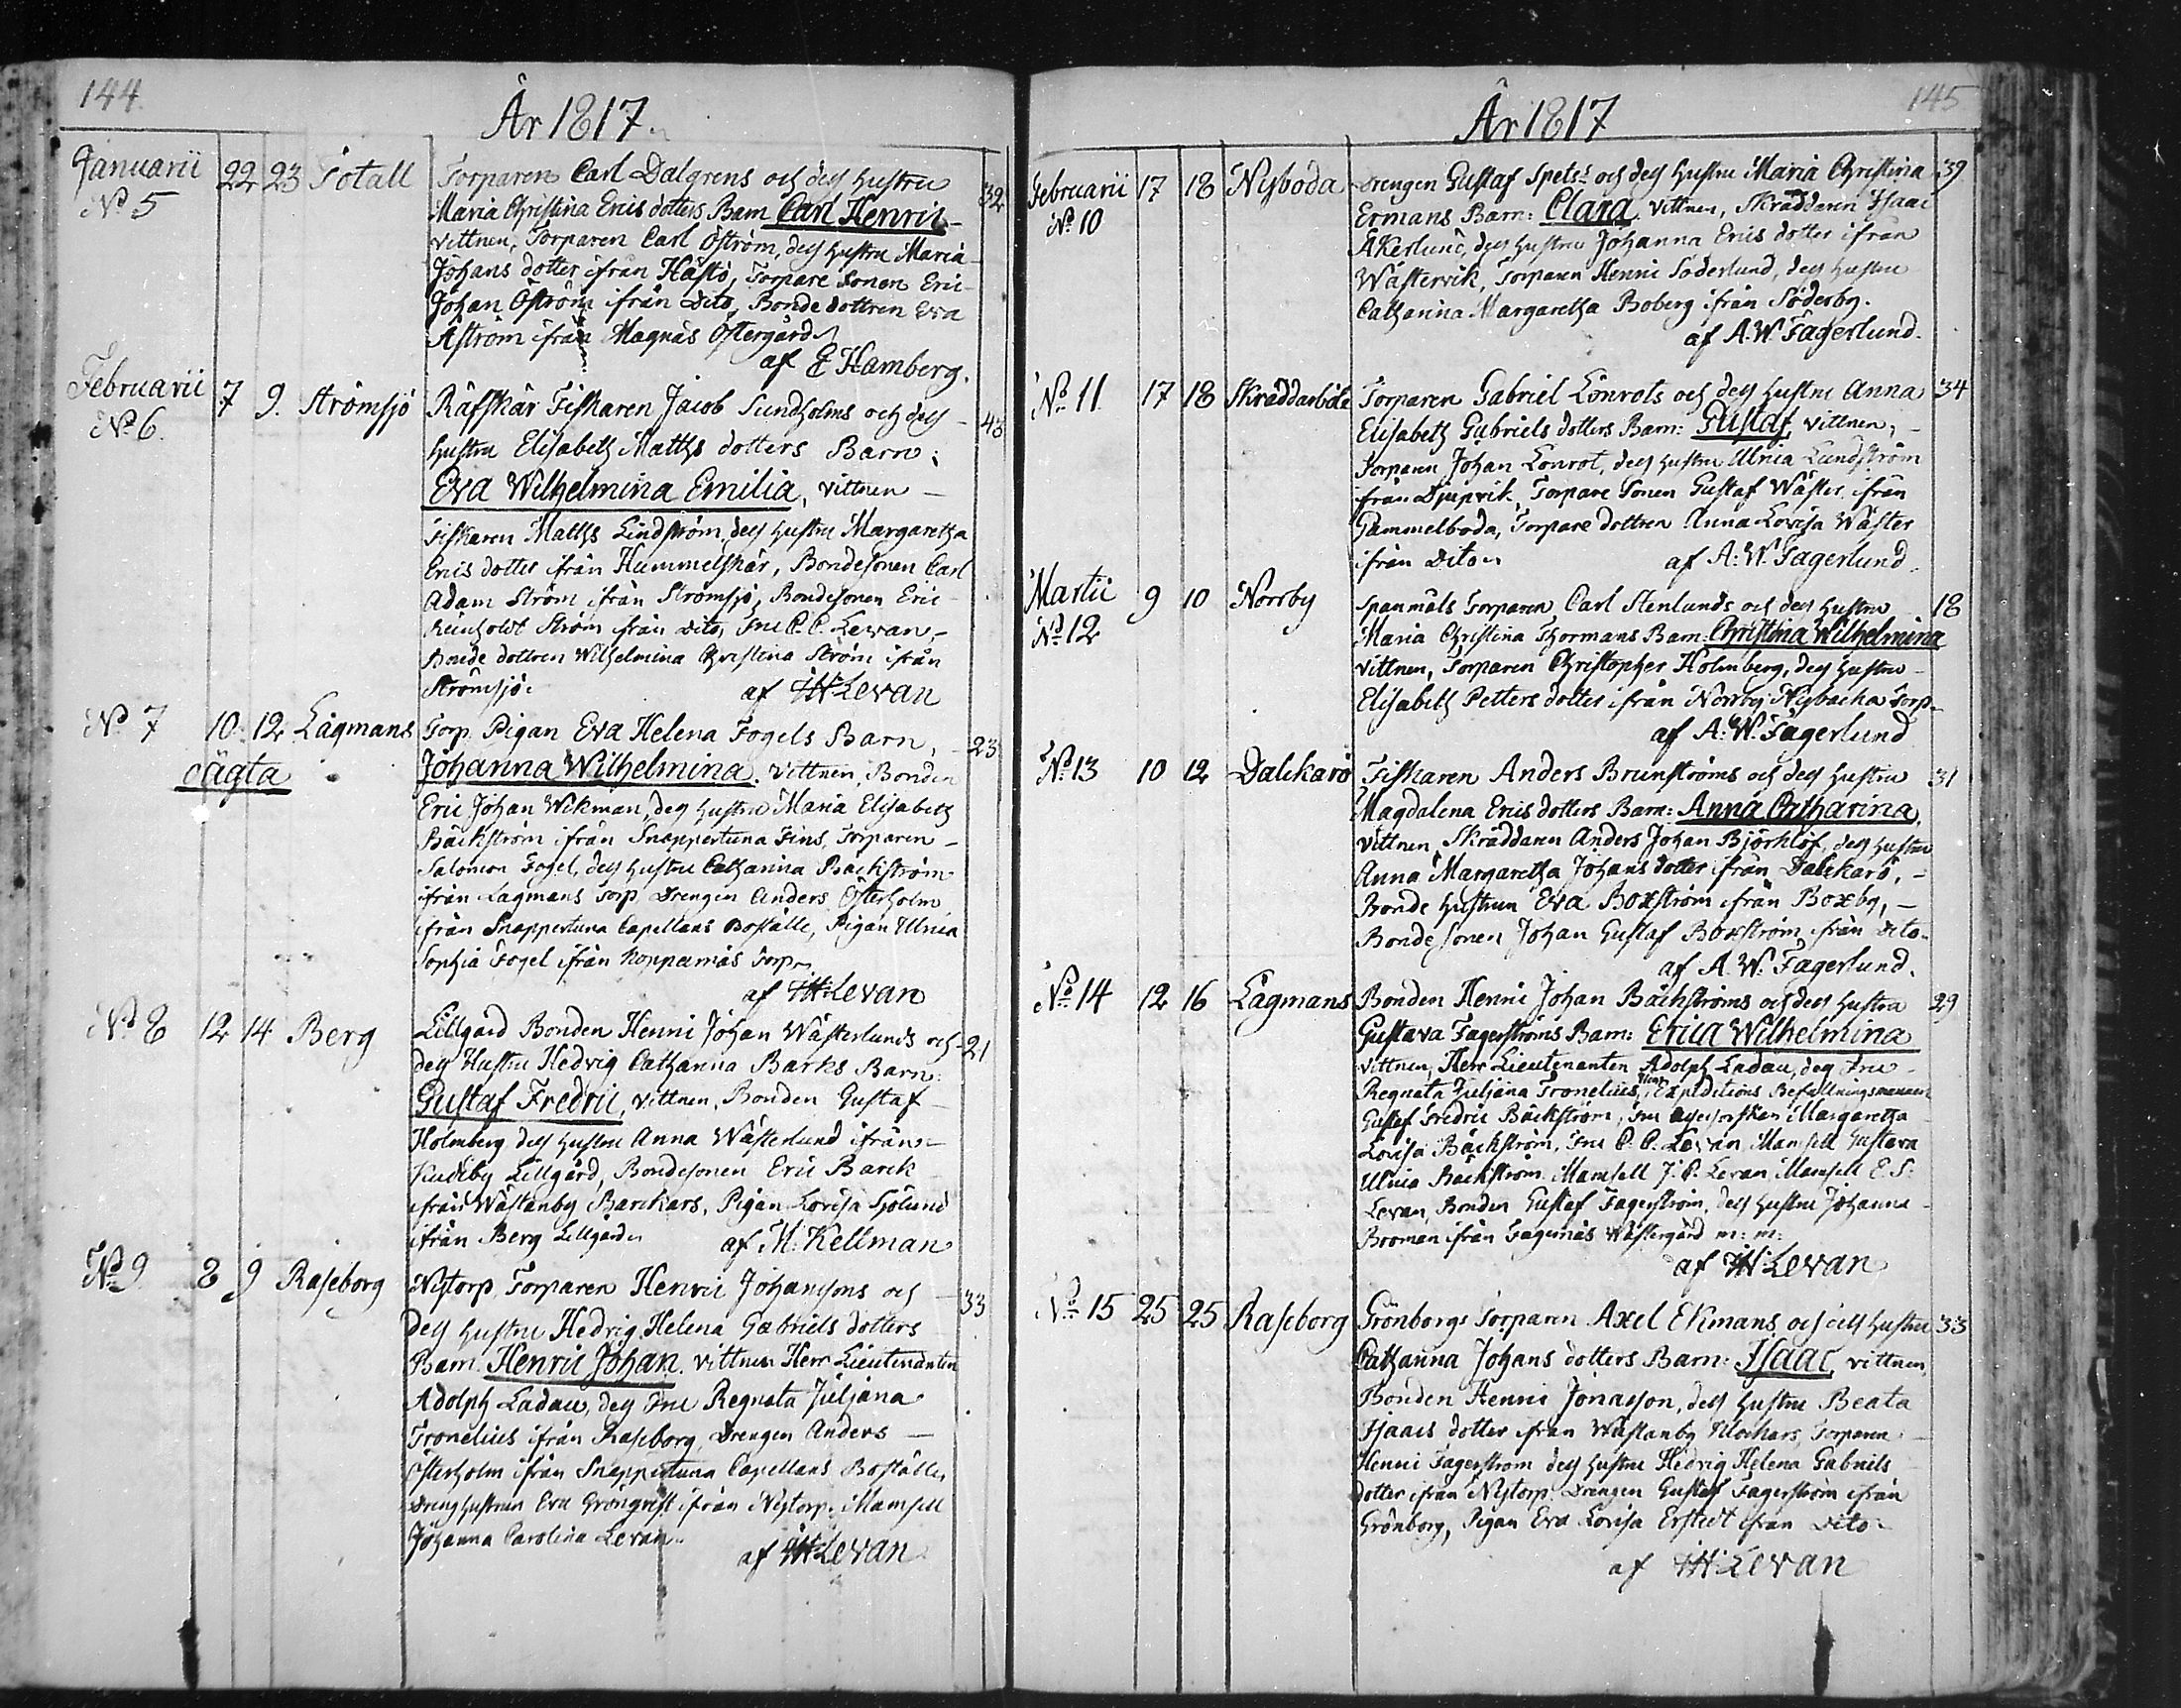 144.
År 1817.
Januarii 22 23 Totall Torparen Carl Dalgrens och dess hustru 32
No 5 Maria Christina Erics dotters Barn Carl Henric
vittnen, Torparen Carl Öström, dess hustru Maria
Johans dotter ifrån Hästö, Torpare Sonen Eric
Johan Öström ifrån Dito, Bonde dottren Eva
Åström ifrån Magnäs Östergård
af E Hamberg.
Februarii 7 9. Strömsjö Räfskär Fiskaren Jacob Sundholms och dess 43
No 6. hustru Elisabeth Matths dotters Barn:
Eva Wilhelmina Emilia, vittnen
Fiskaren Matths Lindström, dess hustru Margaretha
Erics dotter ifrån Hummelskär, Bondesonen Carl
Adam Ström ifrån Strömsjö, Bondesonen Eric
Reinholdt Ström från Dito, Fru C. C. Levan,
Bonde dottren Wilhelmina Christina Ström ifrån
Strömsjö. af Levan
No 7 10. 12 Lagmans Torp Pigan Eva Helena Fogels Barn, 23
oägta Johanna Wilhelmina. vittnen, Bonden
Eric Johan Wikman, dess hustru Maria Elisabeth
Bäckström ifrån Snappertuna Fins, Torparen
Salomon Fogel, dess hustru Catharina Bäckström
ifrån Lagmans Torp Drengen Anders Österholm
ifrån Snappertuna Capellans Boställe, Pigan Ulrica
Sophia Fogel ifrån Kopparnäs Torp
af Levan
No 8 12 14 Berg Lillgård Bonden Henric Johan Wästerlunds och 21
dess Hustru Hedvig Catharina Barks Barn:
Gustaf Fredric, vittnen, Bonden Gustaf
Holmberg dess hustru Anna Wästerlund ifrån
Lillgård, Bondesonen Eric Barck
ifrån Wästanby Barckars, Pigan Lovisa Sjölund
ifrån Berg Lillgård af M: Kellman
No 9 8 9 Raseborg Nytorp Torparen Henric Johanssons och 33
dess hustru Hedvig Helena Gabriels dotters
Barn. Henric Johan. vittnen Herr Lieutenanten
Adolph Ladau, dess Fru Regnata Juliana
Tronelius ifrån Raseborg, Drengen Anders
Österholm ifrån Snappertuna Capellans Boställe,
Dreng hustrun Eva Grönqvist ifrån Nytorp. Mamsell
Johanna Carolina Levan. af Levan
145
År 1817
Februarii 17 18 Nyboda Drengen Gustaf Spets: och dess hustru Maria Christina 39
No 10 Ermans Barn: Clara. vittnen, Skräddaren Isaac
Åkerlund, dess hustru Johanna Erics dotter ifrån
Wästervik, Torparen Henric Söderlund, dess hustru
Catharina Margaretha Boberg ifrån Söderby.
af A. W. Fagerlund.
No 11 17 18 Skräddarböle Torparen Gabriel Lönrots och dess hustru Anna 34
Elisabeth Gabriels dotters Barn: Gustaf, vittnen,
Torparen Johan Lönrot, dess hustru Ulrica Lundström
från Djupvik, Torpare Sonen Gustaf Wäster ifrån
Gammelboda, Torpare dottren Anna Lovisa Wäster
ifrån Dito af A: W. Fagerlund.
Martii 9 10 Norrby Spanmåls Torparen Carl Stenlunds och dess hustru 18
No 12 Maria Christina Thormans Barn: Christina Wilhelmina
vittnen, Torparen Christopher Holmberg, dess hustru
Elisabeth Petters dotter ifrån Norrby Nybacka Torp
af A: W. Fagerlund
No 13 10 12 Dalckarö Fiskaren Anders Brunströms och dess hustru 31
Magdalena Erics dotters Barn: Anna Catharina,
vittnen, Skräddaren Anders Johan Björklöf, dess hustru
Anna Margaretha Johans dotter ifrån Dalckarö,
Bonde hustrun Eva Boxström ifrån Boxby,
Bonde sonen Johan Gustaf Boxström ifrån Dito.
af A. W. Fagerlund.
No 14 12 16 Lagmans Bonden Henric Johan Bäckströms och dess hustru 29
Gustava Fagerströms Barn: Erica Wilhelmina
vittnen, Herr Lieutenanten Adolph Ladau, dess Fru
Regnata Juliana Tronelius, Expeditions Befallningsmannen
Gustaf Fredric Bäckström, Fru Margaretha
Lovisa Bäckström, Fru C. C. Levan, Mamsell Gustava
Ulrica Bäckström. Mamsell J. C. Levan Mamsell E. S.
Levan, Bonden Gustaf Fagerström, dess hustru Johanna
Booman ifrån Fagernäs Wästergård m: m:
af Levan
No 15 25 25 Raseborg Grönborgs Torparen Axel Ekmans och dess hustru 33
Catharina Johans dotters Barn: Isaac, vittnen,
Bonden Henric Jonasson, dess hustru Beata
Isaacs dotter ifrån Wästanby Klockars, Torparen
Henric Fagerström dess hustru Hedvig Helena Gabriels
dotter ifrån Nytorp, Drengen Gustaf Fagerström ifrån
Grönborg, Pigan Eva Lovisa Erstedt ifrån Dito
af Levan